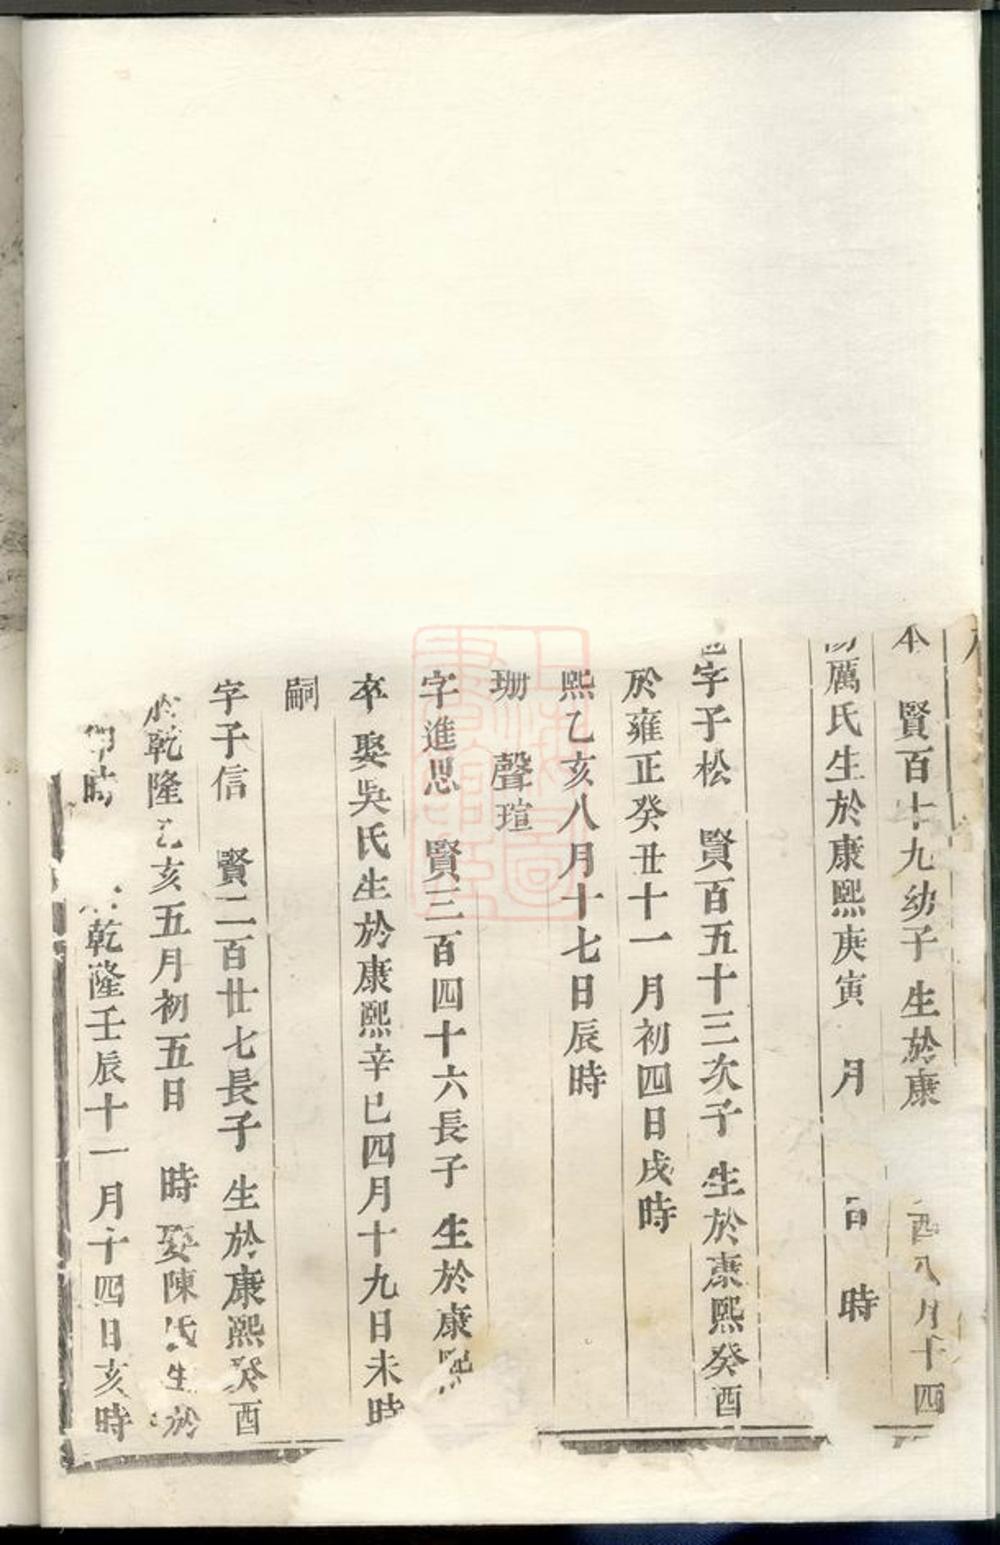 本 賢百十九幼子 生於康 酉八月十四
厲氏生於康熙庚寅 月 日 時
字子松 賢百五十三次子 生於康熙癸酉
於雍正癸丑十一月初四日戌時
熙乙亥八月十七日辰時
珊 聲瑄
字進思 賢三百四十六長子 生於康熙
卒 娶吳氏生於康熙辛巳四月十九日未時
嗣
字子信 賢二百廿七長子 生於康熙癸酉
於乾隆乙亥五月初五日 時 娶陳氏生於
時 乾隆壬辰十一月十四日亥時
上海圖書館藏